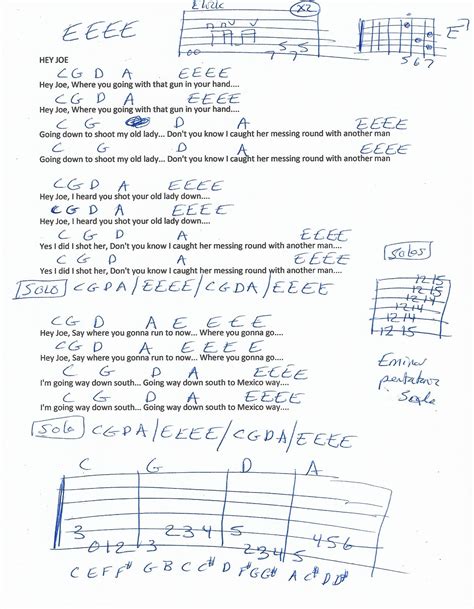 E lick X2
EEEE
00 7 5 7 5
E7
5 6 7
HEY JOE
C G D A EEEE
Hey Joe, Where you going with that gun in your hand....
C G D A EEEE
Hey Joe, Where you going with that gun in your hand....
C G D A EEEE
Going down to shoot my old lady... Don't you know I caught her messing round with another man
C G D A EEEE
Going down to shoot my old lady... Don't you know I caught her messing round with another man
C G D A EEEE
Hey Joe, I heard you shot your old lady down....
C G D A EEEE
Hey Joe, I heard you shot your old lady down....
C G D A EEEE
Yes I did I shot her, Don't you know I caught her messing round with another man....
C G D A EEEE
Yes I did I shot her, Don't you know I caught her messing round with another man....
Solos
12 15
12 15
12 14
12 14
12 14
12 15
SOLO CGDA/EEEE/CGDA/EEEE
E minor
pentatonic
Scale
C G D A E EEE
Hey Joe, Say where you gonna run to now... Where you gonna go....
C G D A E E E E
Hey Joe, Say where you gonna run to now... Where you gonna go....
C G D A EEEE
I'm going way down south... Going way down south to Mexico way....
C G D A EEEE
I'm going way down south... Going way down south to Mexico way....
Solo CGDA/EEEE/CGDA/EEEE
C G D A
3 2 3 4 5 4 5 6
0 1 2 3 2 3 4 5
C E F F# G B C C# D F# G G# A C# D D#